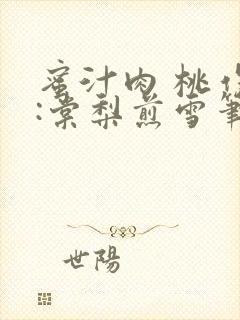 蜜汁肉桃作
:棠梨煎雪筆
世陽